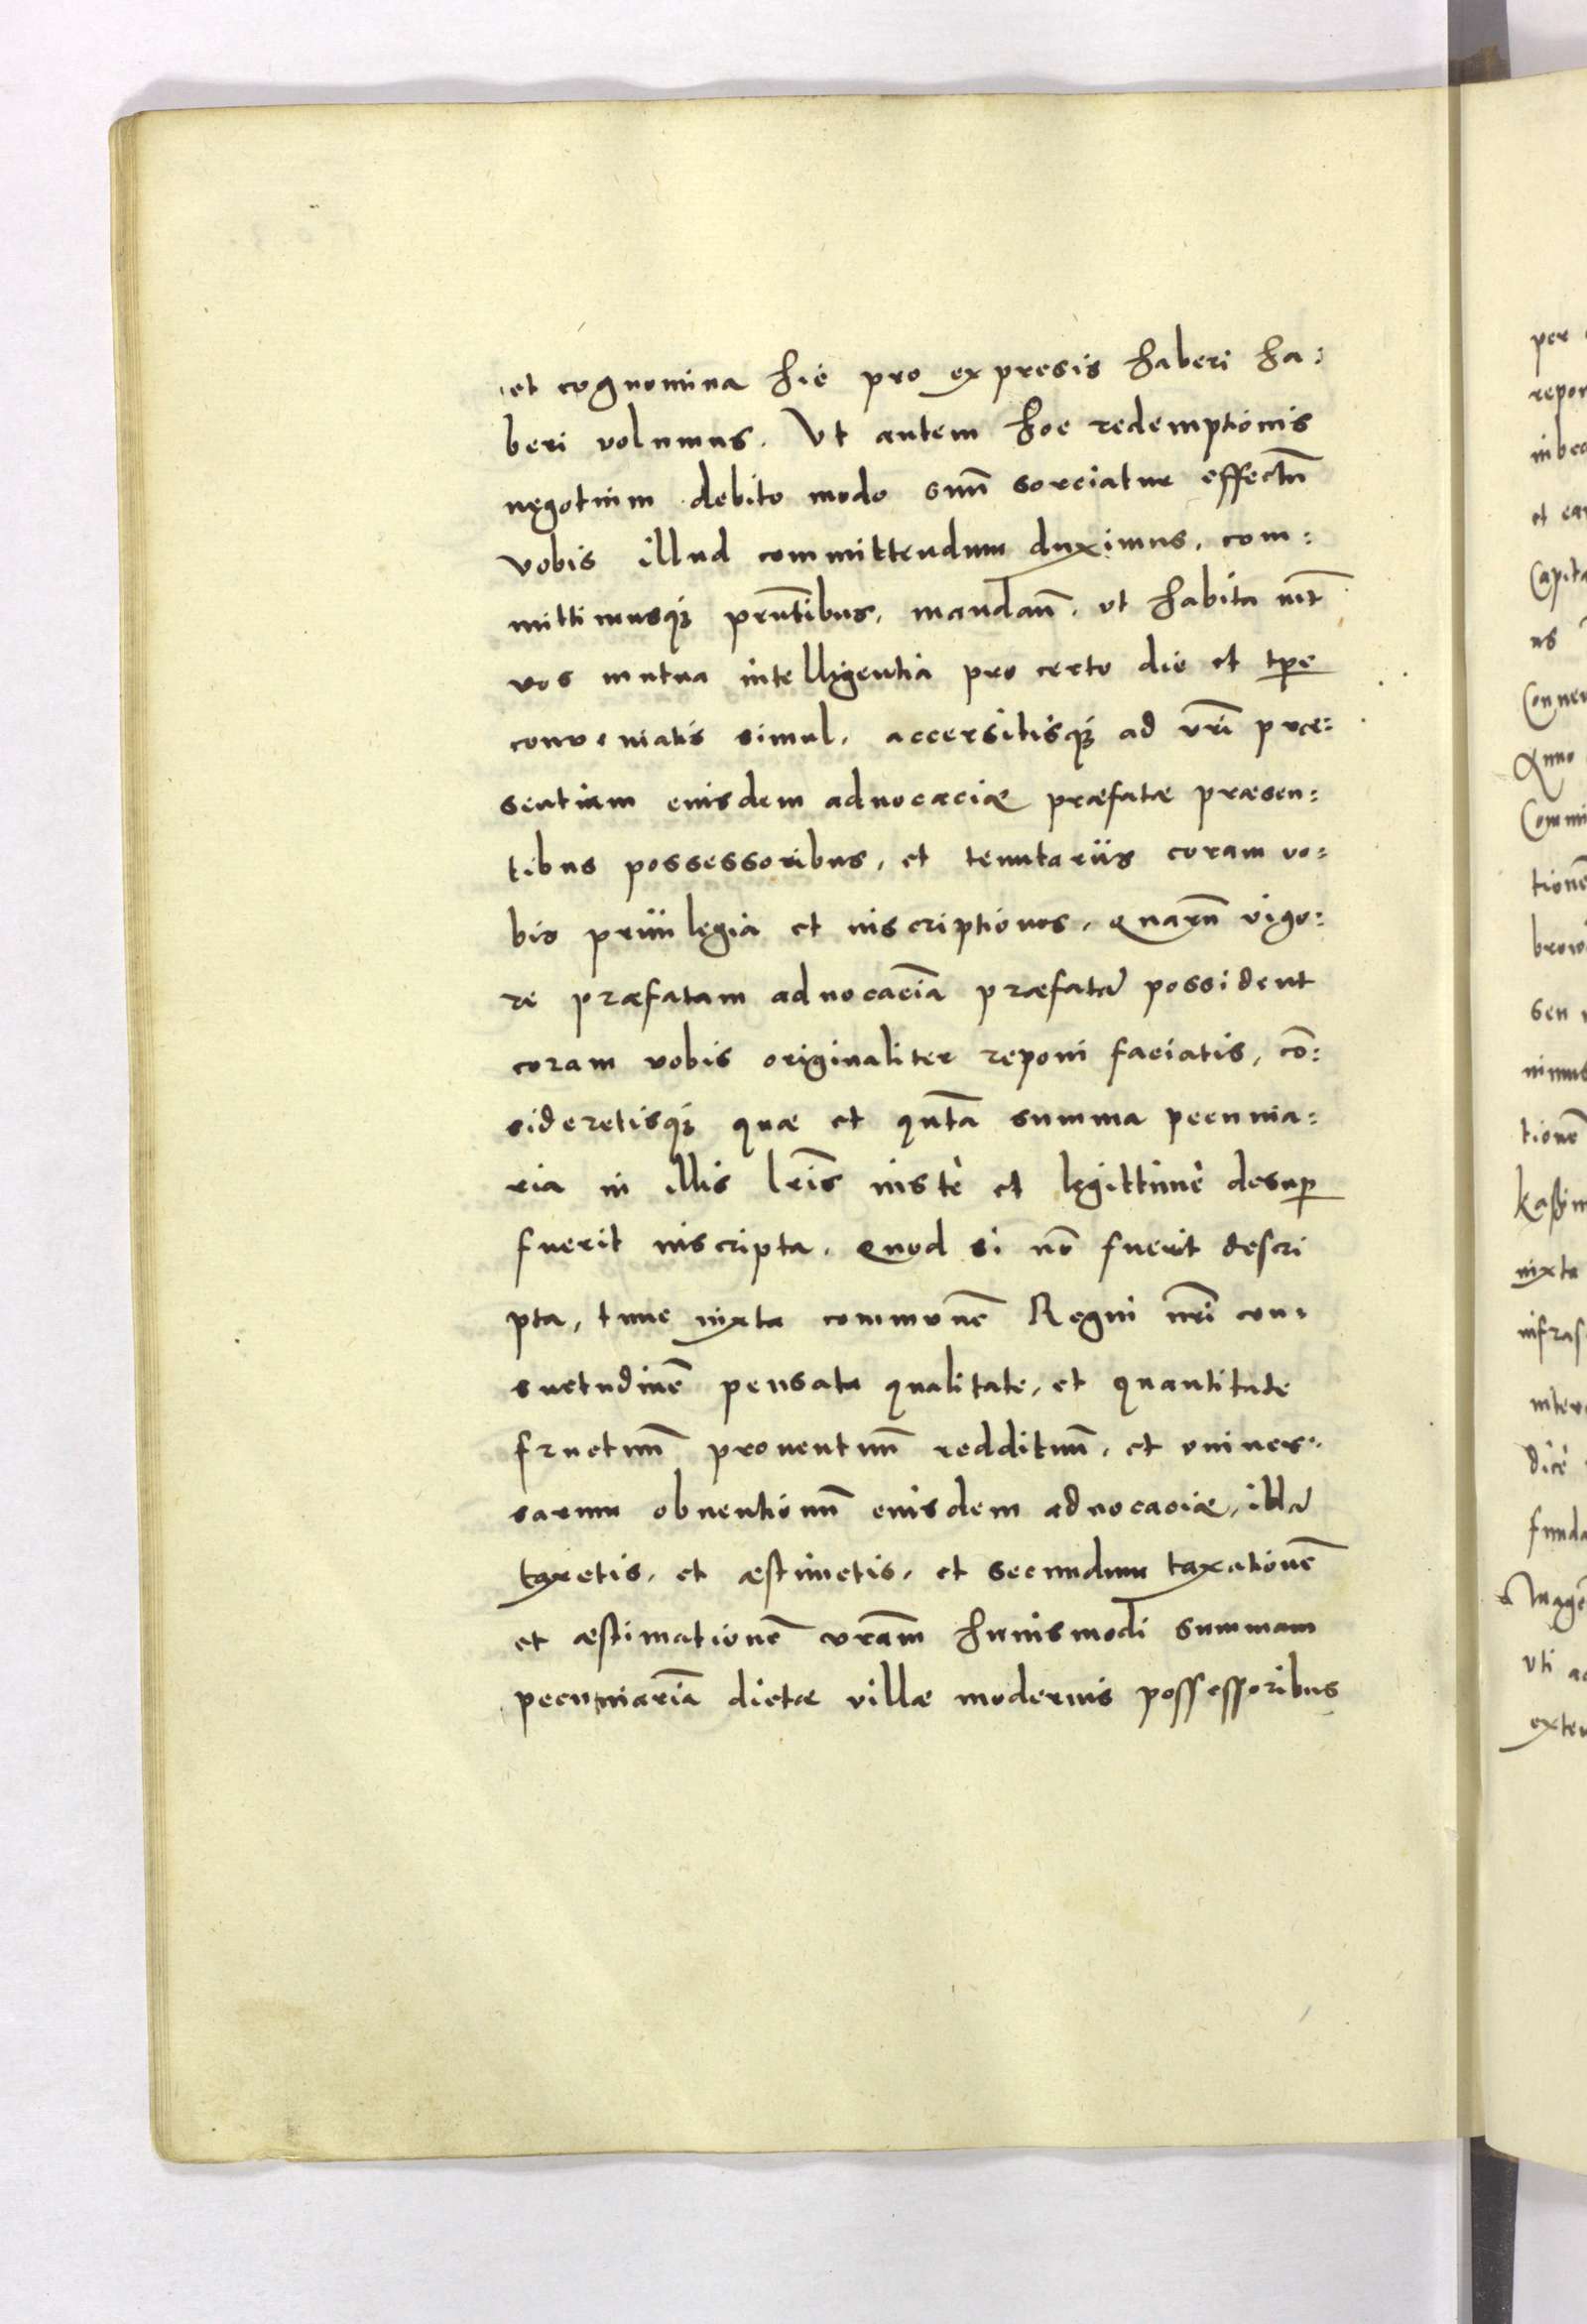 et cognomina hic pro expresis haberi ha:
beri volumus. Vt autem hoc redemptionis
negotium debito modo suũ sorciatur effectũ
vobis illud committendum duximus, com:
mittimusq; prñtibus, mandañ. ut habita int̃
vos mutua intelligentia pro certo die et tp̃e
conveniatis simul, accersitisq; ad vrñ prae:
sentiam eiusdem aduocaciæ præfatæ præsen:
tibus possessoribus, et tenutariis coram vo:
bis priuilegia et inscriptiones, Quarũ vigo:
re præfatam aduocaciã præfatã possident
coram vobis originaliter reponi faciatis, cõ:
sideretisq; quæ et quñta summa pecunia:
ria in illis lr̃is iustè et legittimè desup
fuerit inscripta. Quod si nõ fuerit descri
pta, tunc iuxta communẽ Regni nr̃i con:
suetudinẽ pensata qualitate, et quantitate
fructuũ prouentuũ reddituũ, et vniuer:
sarum obuentionũ eiusdem aduocaciæ, illã
taxetis, et æstimetis, et secundum taxationẽ
et æstimationẽ vr̃am huiusmodi summam
pecuniariã dictæ villæ modernis possessoribus
per
repon
et
Capita
us
Conuen
Anno
Commi
tionẽ
brow
seu
nimus
tionẽ
iuxta
infras
dicẽ
funda
vti
exten